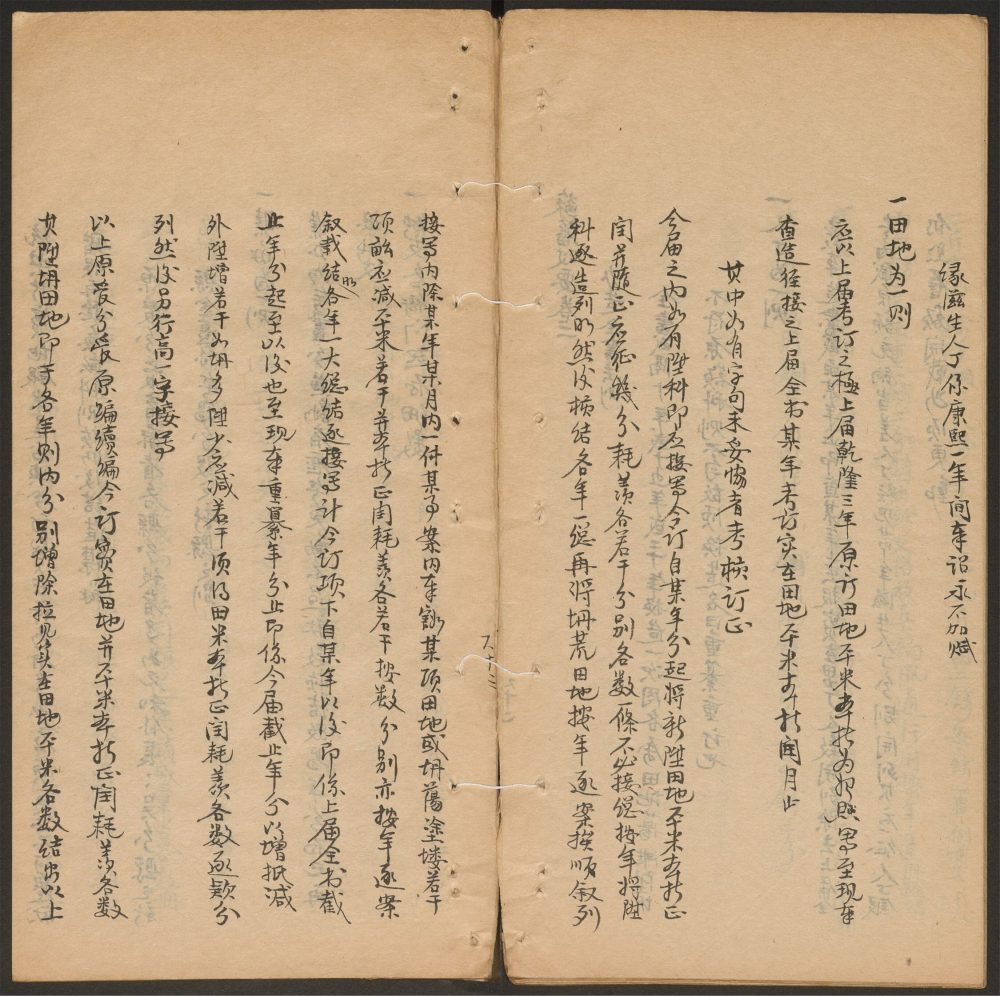 緣滋生人丁係康熙一年间奉诏永不加赋
一田地为一则
应以上届考订之極上届乾隆三年原订田地平米本折为初照写至现奉
查造径接之上届全书某年考订实在田地平米本折闰月止
其中如有字句未妥协者考核订正
今届之内如有陞科即应接写今订自某年分起将新陞田地平米本折正
闰并随正应征钱分耗羡各若干分别各数一條不必接總按年将陞
科逐造列明然後核结各年一總再将坍荒田地按年逐案挨顺叙列
接写内除某年某月内一件某事案内奉豁某项田地或坍蕩塗塿若干
项畝应减平米若干并本折正闰耗羡各若干按数分别亦按年逐案
叙载明结各年一大總结逐接写计今订项下自某年以後即係上届全书截
止年分起至以後也至现奉重纂年分止即係今届截止年分以增抵減
外陞增若干如坍多陞少应減若干须以田米本折正闰耗羡各数逐款分
列然後另行高一字接写
以上原爰分爰原編續編今订實在田地并平米本折正闰耗羡各数
其陞坍田地即于各年则内分别增除拉见實在田地平米各数结出以上
六十二